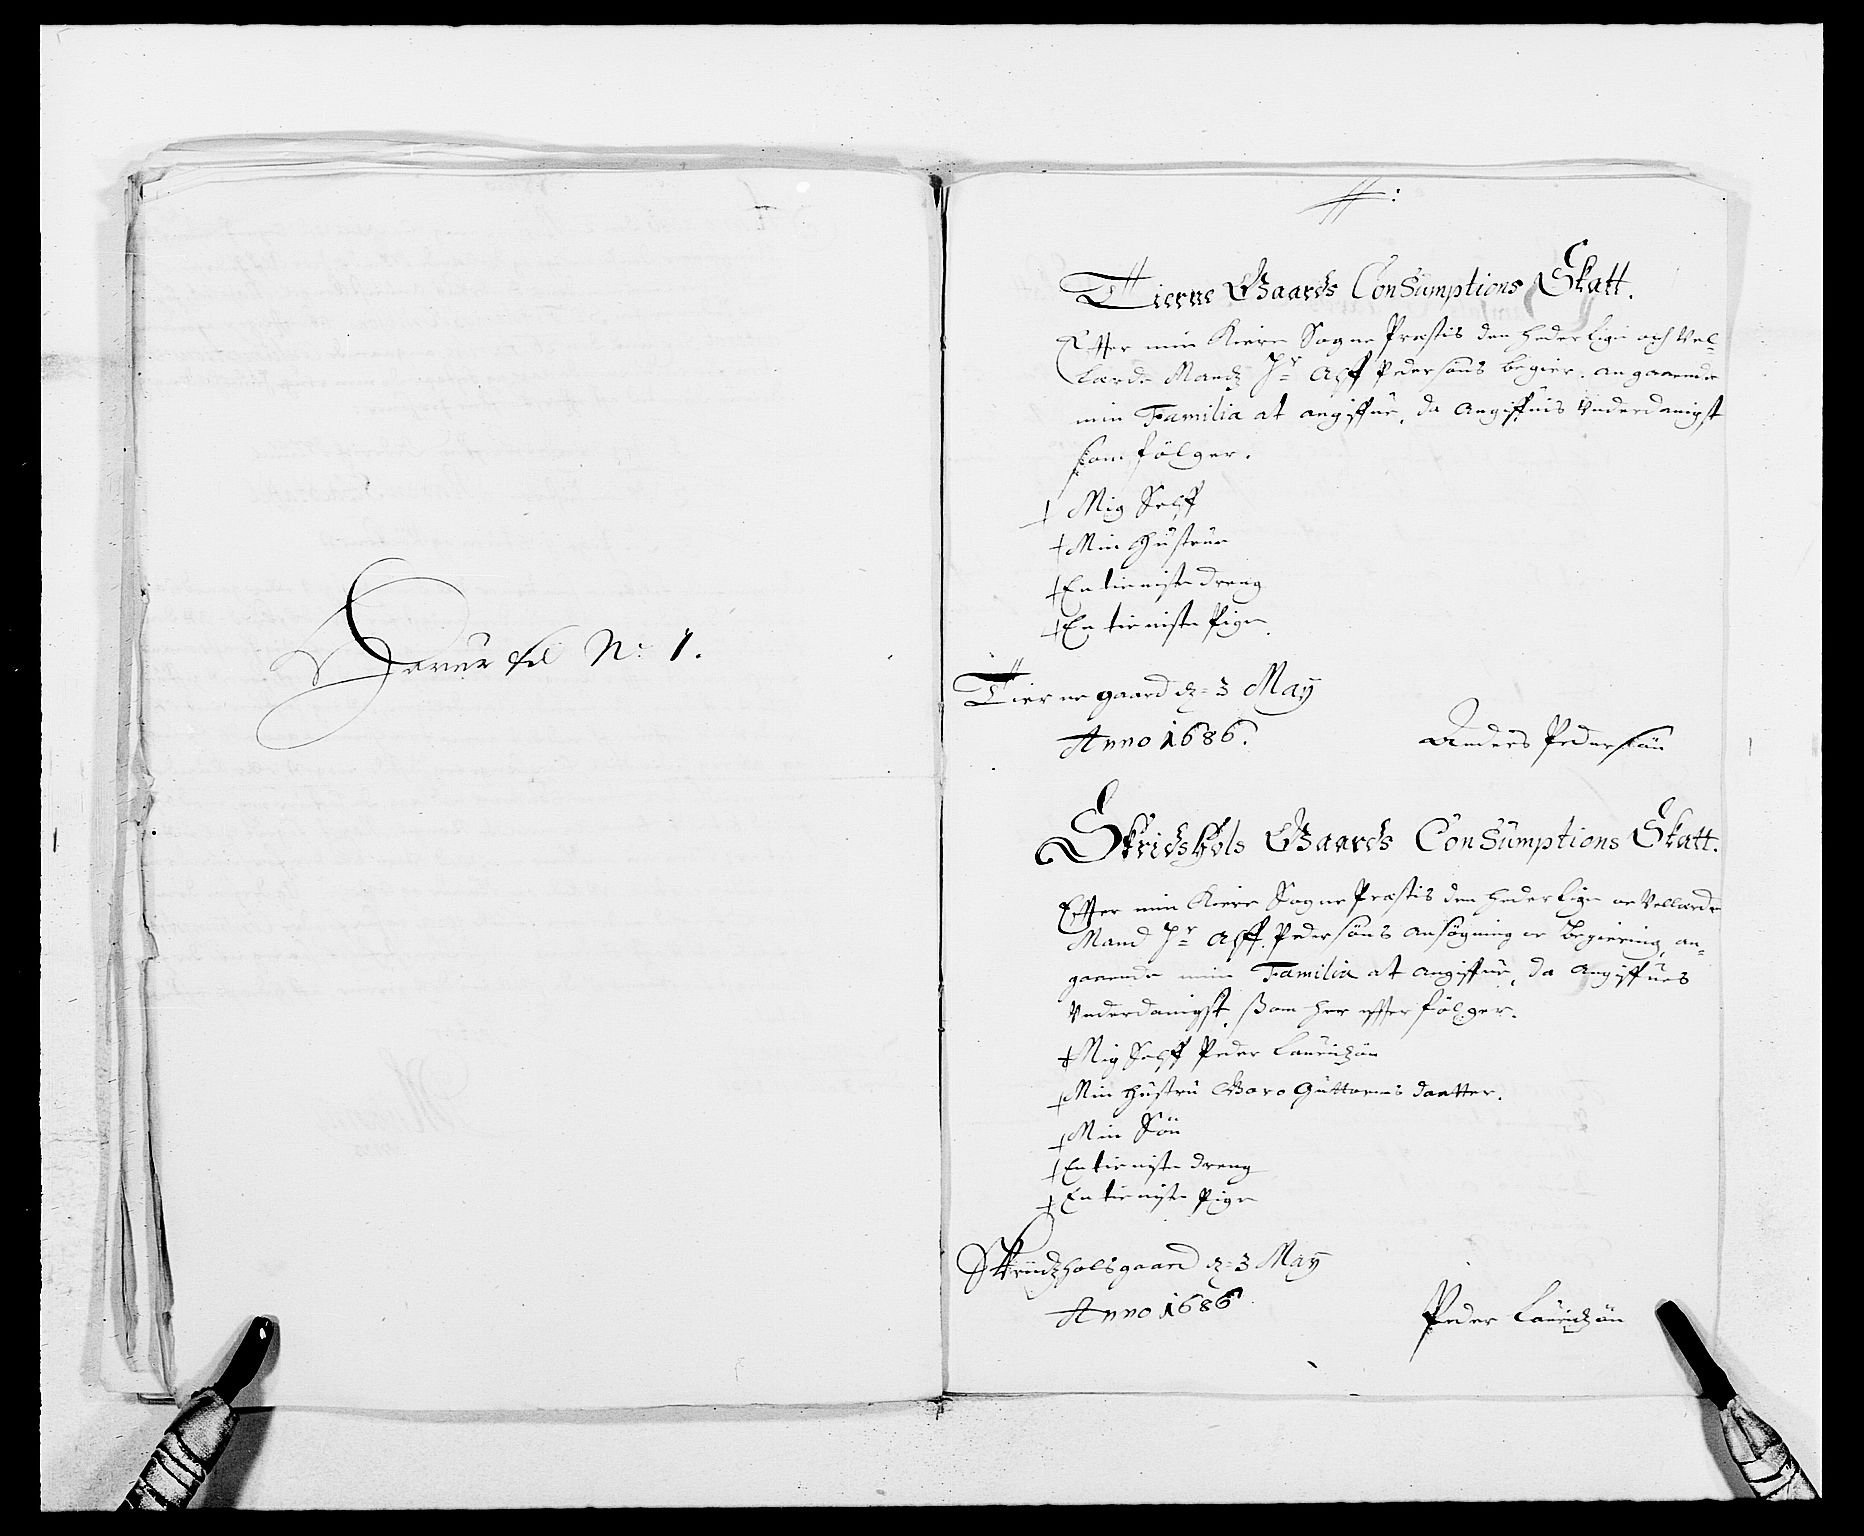 Hører til No 1.
Tierne Gaards Consumptions Skatt.
Effter min Kiere Sogne Præstis den Hæderlige och Vel-
lærde Mandz Hr Alff Pedersöns begier, angaaende
min Familia at angiffue, da Angiffuis Underdanigst
som fölger.
Mig Selff
Min Hustrue
En tieniste dreng
En tieniste Pige
Tierne gaard dz 3 May
Anno 1686.
Anders Pedersön
Skridshols Gaards Consumptions Skatt.
Effter min Kiere Sogne Præstis den Hæderlige oc Vellærde
Mand Hr Alff Pedersöns Ansögning oc Begiering, an-
gaaende min Familia at angiffue, da Angiffues
Underdanigst, som her effter fölger.
Mig Selff Peder Lauridzön
Min Hustru Goro Guttorms daatter.
Min Sön
En tieniste dreng
En tieniste Pige
Skridzholsgaard dz 3 May
Anno 1686
Peder Lauridzön